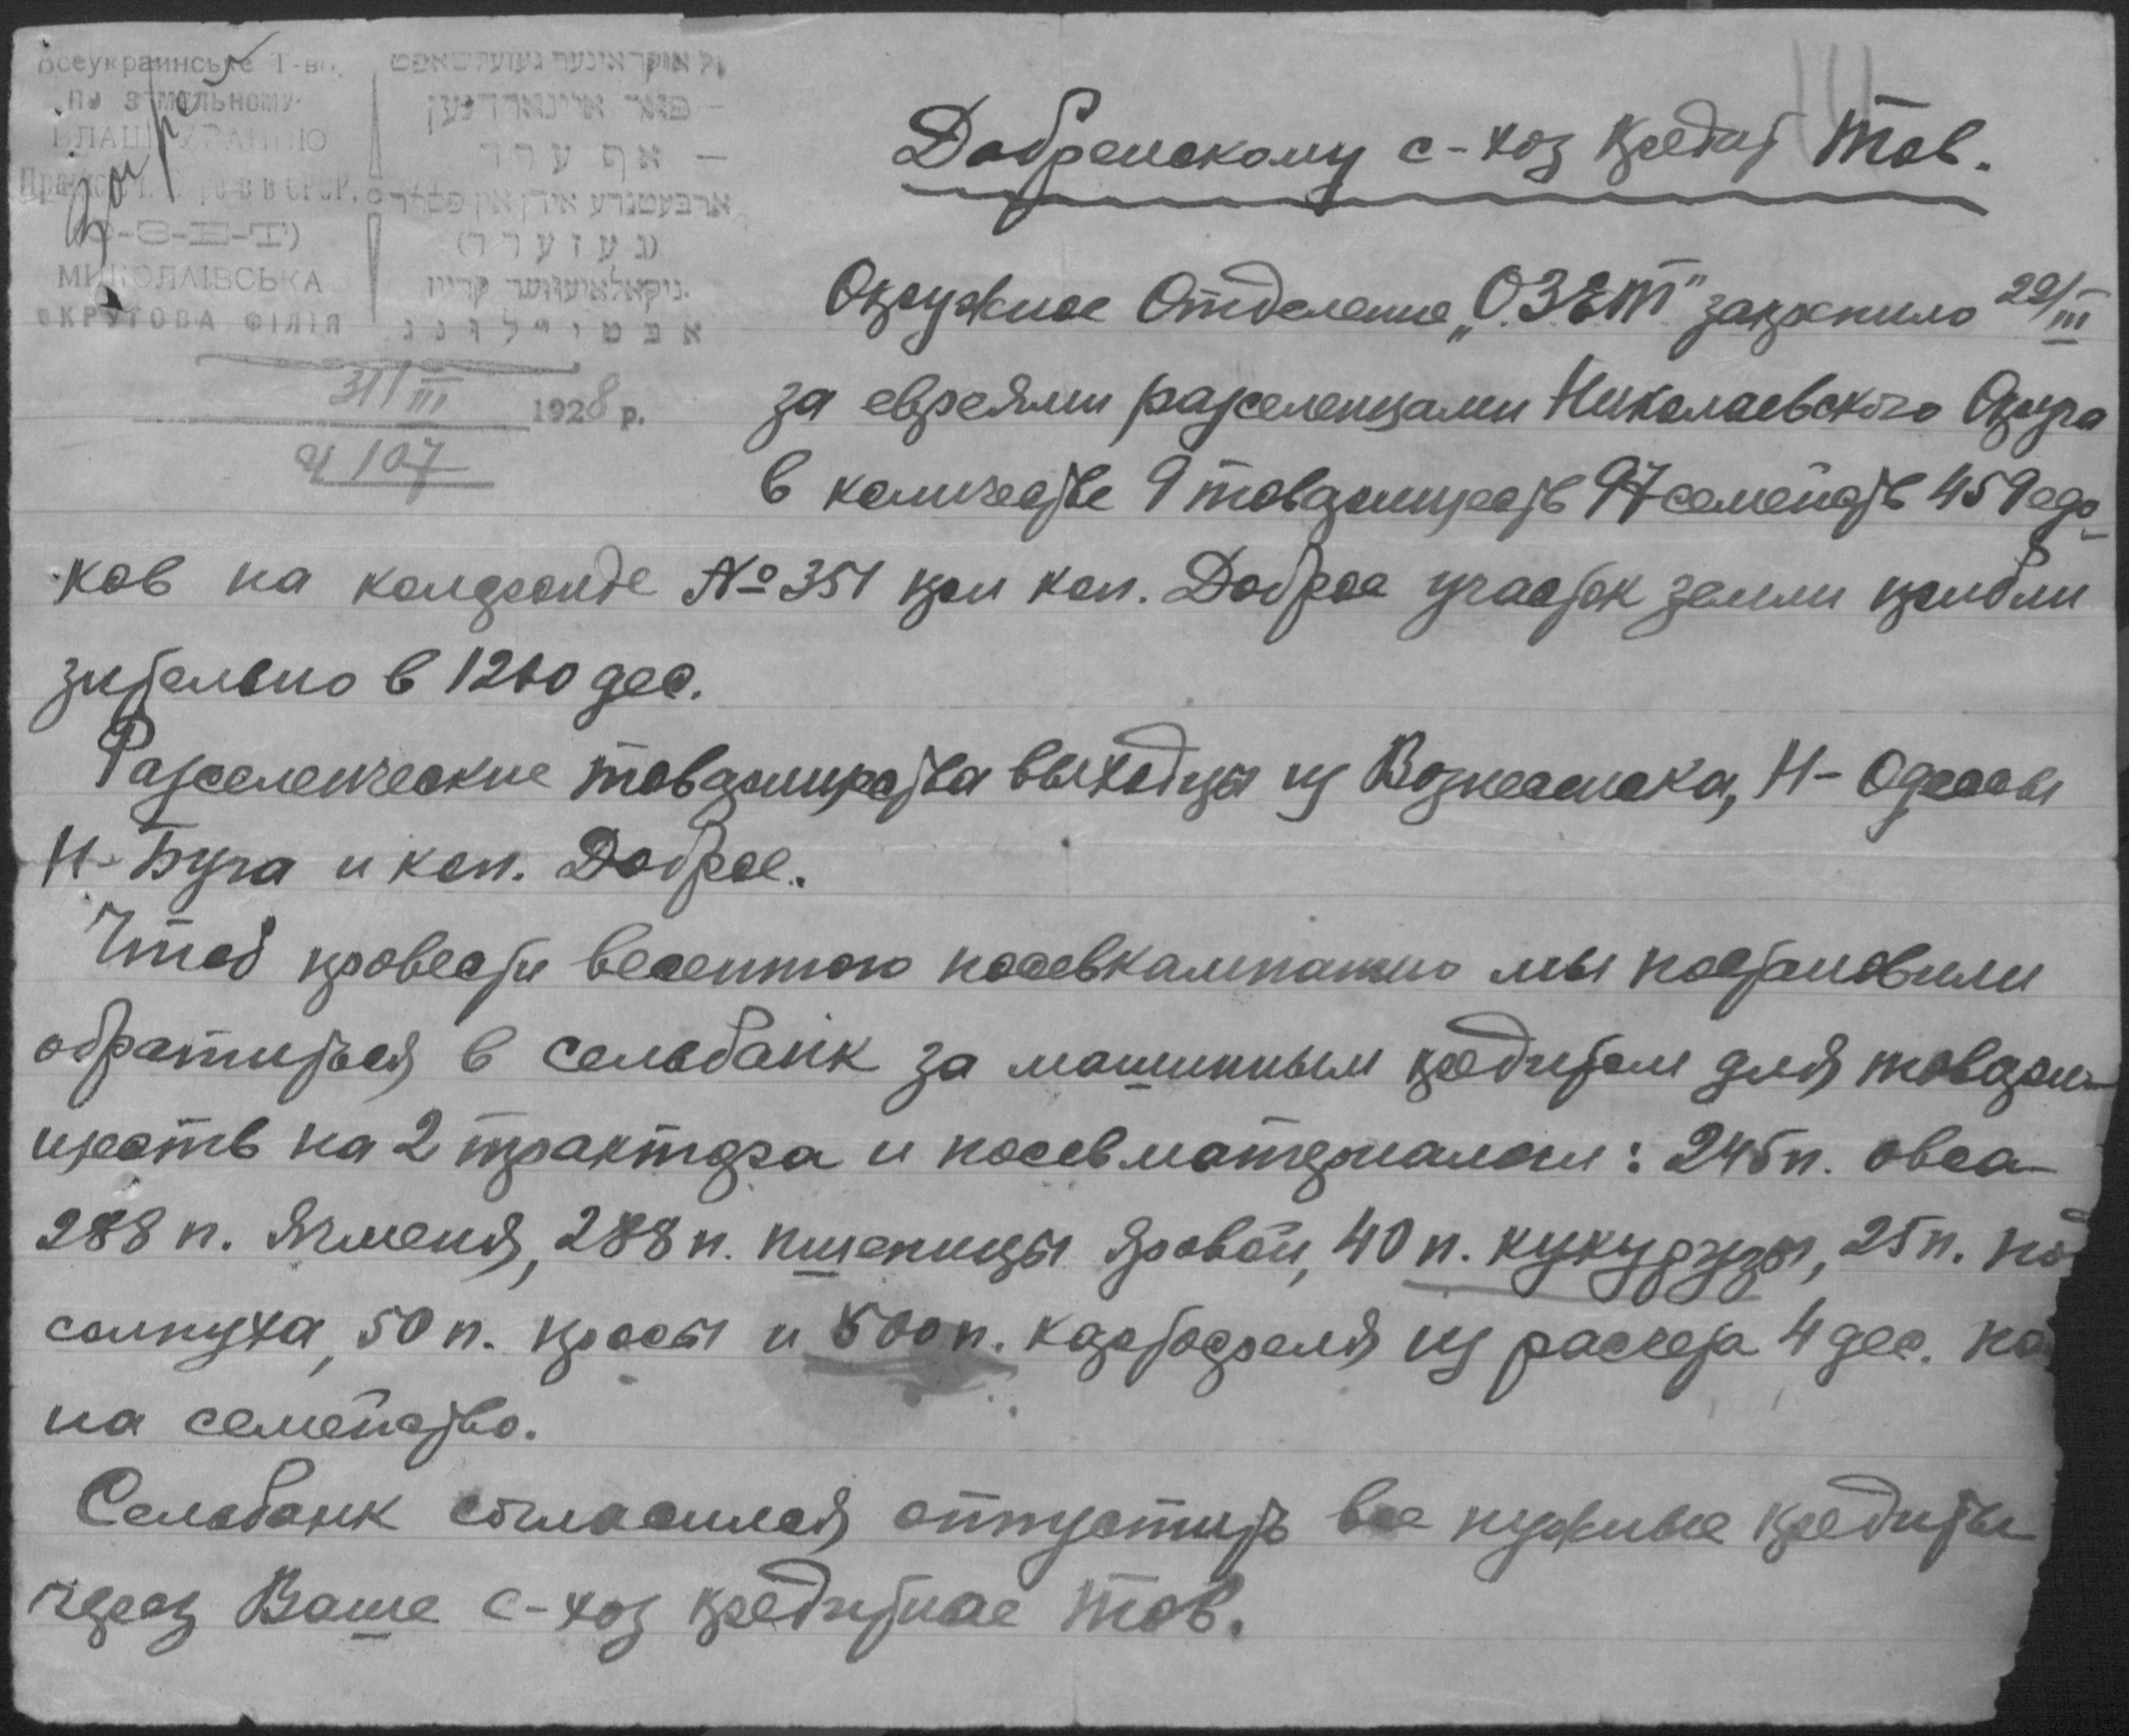 Всеукраинське Т-во
по земельному
ВЛАШТУВАННЮ
(О-З-Е-Т)
МИКОЛАІВСЬКА
ОКРУГОВА ФІЛІЯ
אוקראינער געזעלשאפט
פאר איינארדנען
אף ערד
ארבעטנדע אידן אין
(געזערד)
ניקאלאיעווער קרייז
אבטיילונג
31/III 1928 р.
Ч 107
Добренскому с-хоз кредит Тов.
Окружное Отделение „ОЗЕТ" закрепило 22/III
за евреями расселенцами Николаевского Округа
в количестве 9 товариществ 97 семейств 459 едо-
ков на колфонде № 351 при кол. Доброе участок земли прибли
зительно в 1200 дес.
Расселенческие товарищества выходцы из Вознесенска, Н-Одессы
Н-Буга и кол. Доброе.
Чтоб провести весеннюю посевкампанию мы постановили
обратиться в сельбанк за машинным кредитом для товари-
ществ на 2 трактора и посевматериалом: 245 п. овса
288 п. Ячменя, 288 п. пшеницы яровой, 40 п. кукурузы, 25 п. под
солнуха, 50 п. просы и 500 п. картофеля из расчета 4 дес. по
на семейство.
Сельбанк согласился отпустить все нужные кредиты
через Ваше с-хоз кредитное Тов.